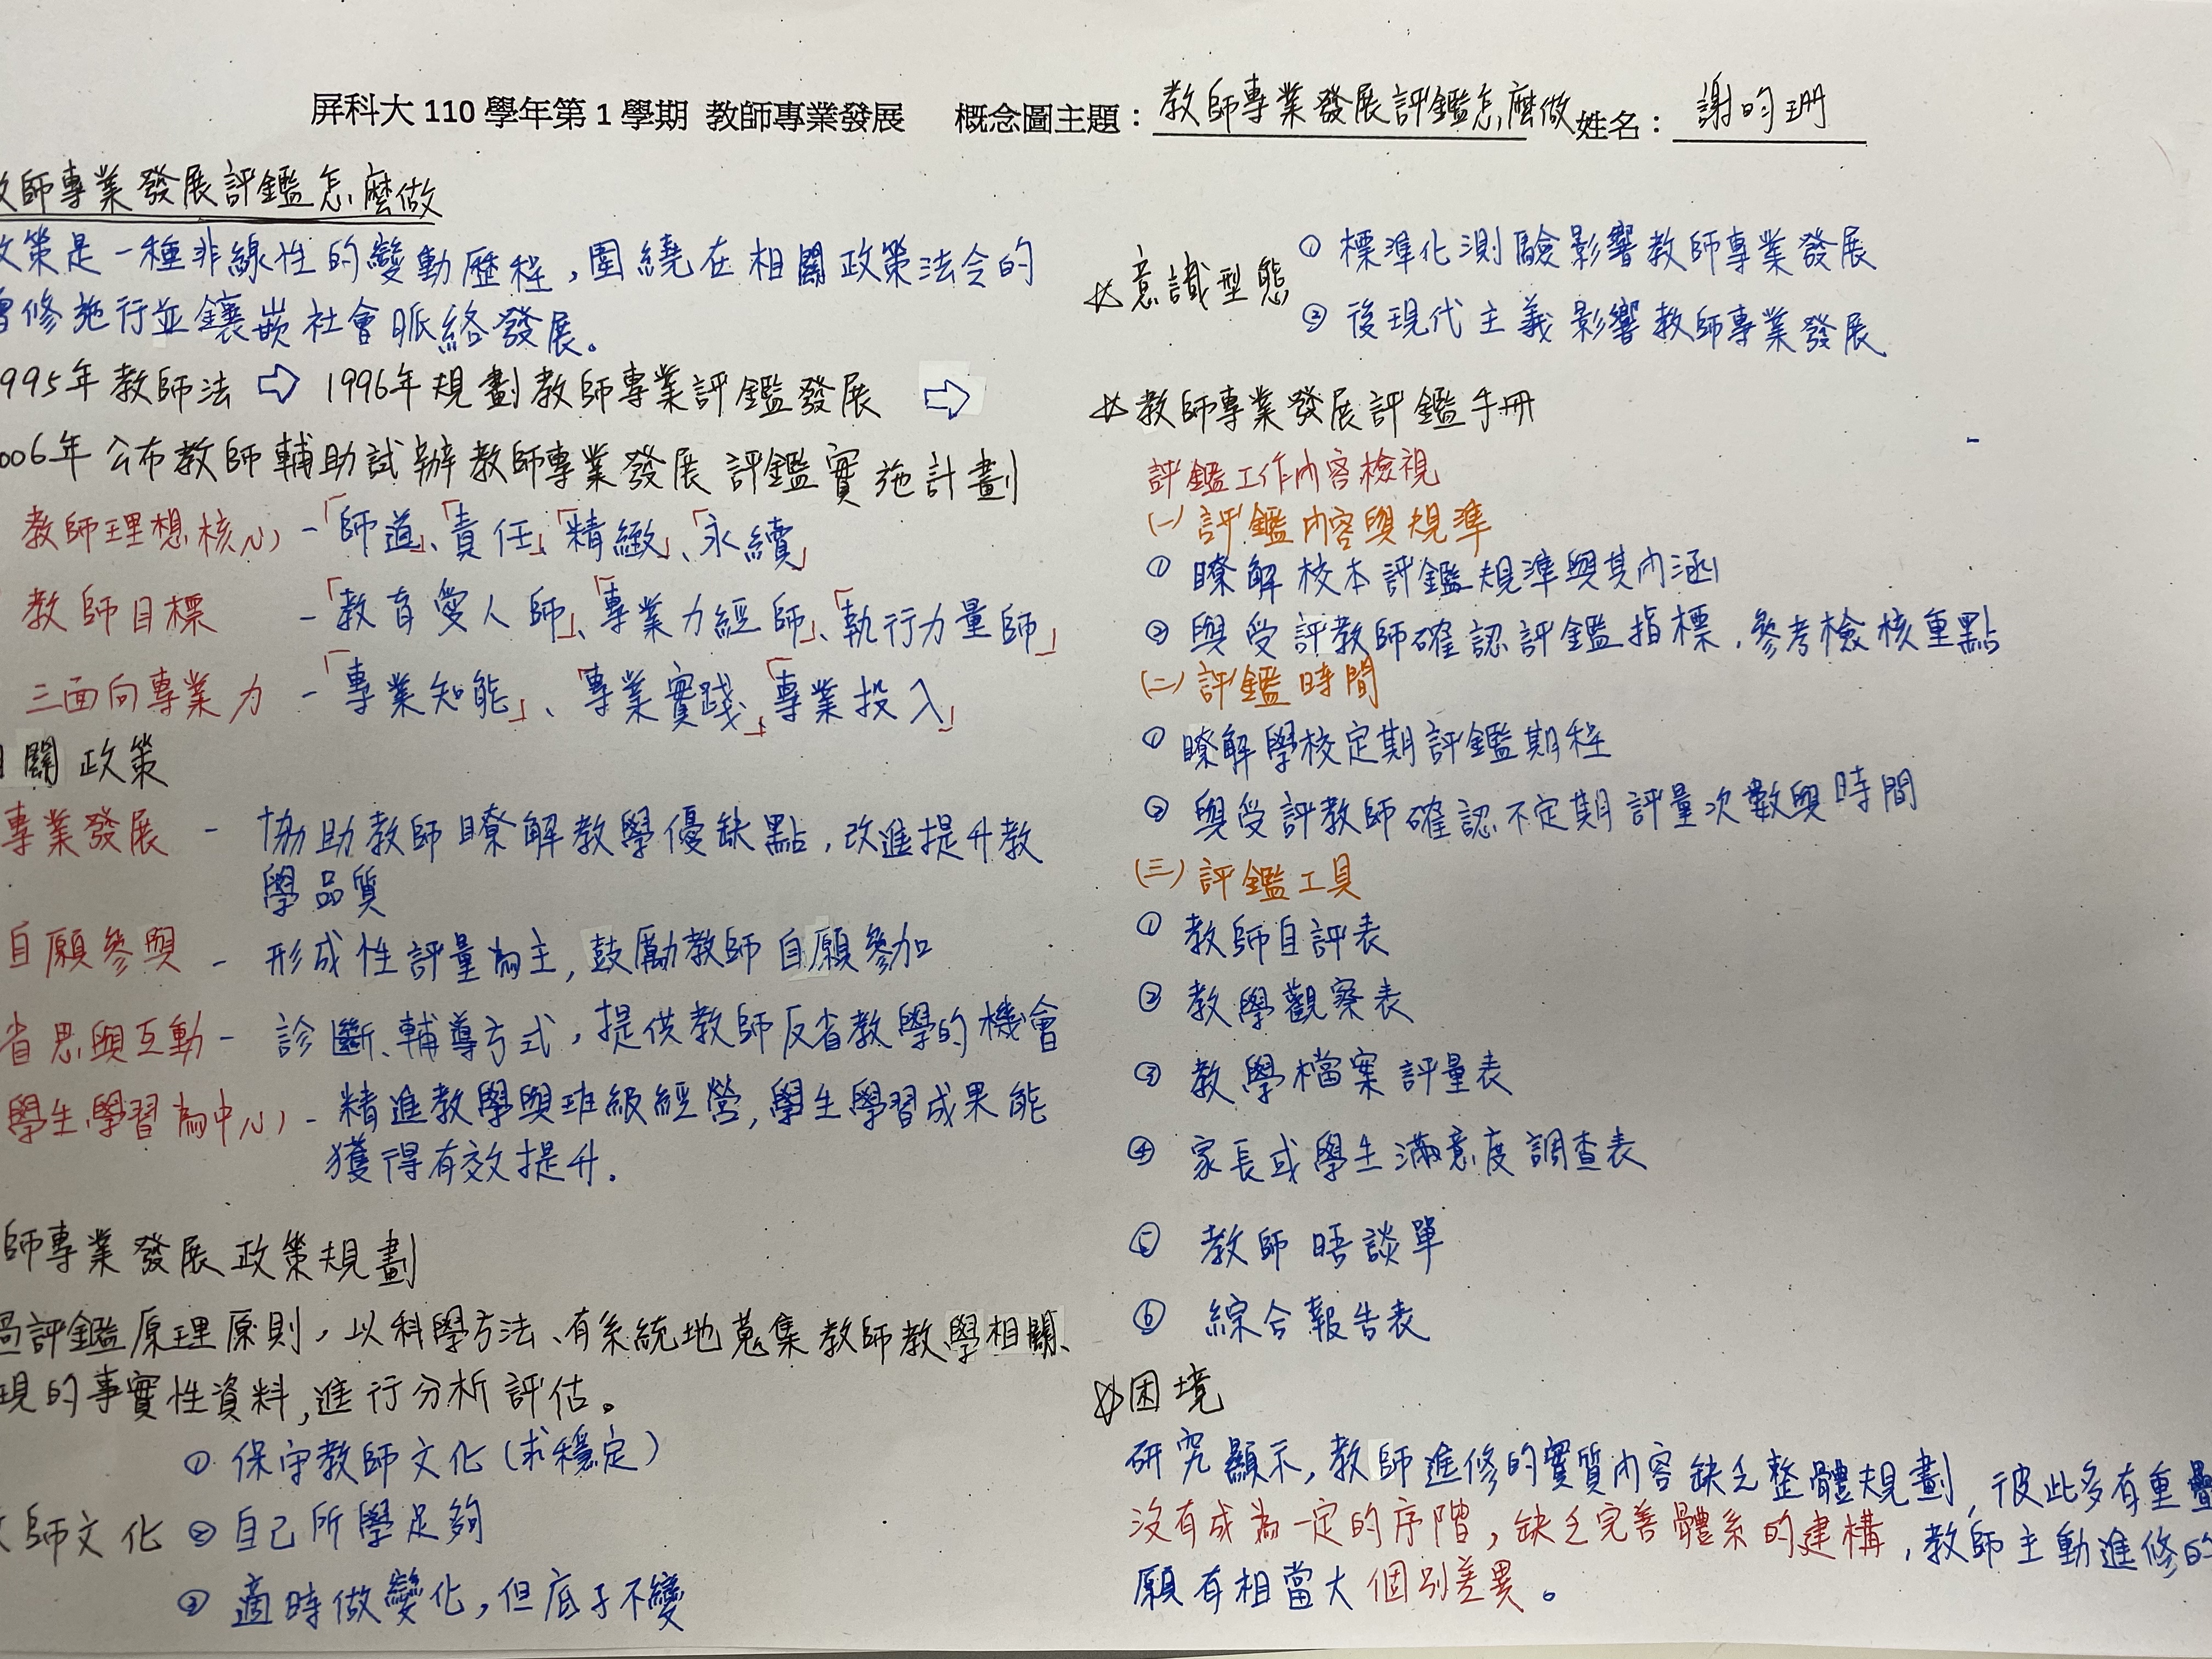 屏科大 110 學年第 1 學期 教師專業發展 概念圖主題：教師專業發展評鑑怎麼做 姓名：謝昀珊
師專業發展評鑑怎麼做
政策是一種非線性的變動歷程，圍繞在相關政策法令的
修施行並鑲嵌社會脈絡發展。
995年教師法 ⇨ 1996年規劃教師專業評鑑發展 ⇨
006年公布教師輔助試辦教師專業發展評鑑實施計劃
教師理想核心 -「師道」、「責任」、「精緻」、「永續」
教師目標 -「教育愛人師」、「專業力經師」、「執行力量師」
三面向專業力 -「專業知能」、「專業實踐」、「專業投入」
關政策
專業發展 - 協助教師瞭解教學優缺點，改進提升教
學品質
自願參與 - 形成性評量為主，鼓勵教師自願參加
省思與互動 - 診斷、輔導方式，提供教師反省教學的機會
學生學習為中心 - 精進教學與班級經營，學生學習成果能
獲得有效提升.
師專業發展政策規劃
過評鑑原理原則，以科學方法、有系統地蒐集教師教學相關、
現的事實性資料，進行分析評估。
① 保守教師文化（求穩定）
師文化 ② 自己所學足夠
③ 適時做變化，但底子不變
☆意識型態 ① 標準化測驗影響教師專業發展
② 後現代主義影響教師專業發展
☆教師專業發展評鑑手冊
評鑑工作內容檢視
(一) 評鑑內容與規準
① 瞭解校本評鑑規準與其內涵
② 與受評教師確認評鑑指標，參考檢核重點
(二) 評鑑時間
① 瞭解學校定期評鑑期程
② 與受評教師確認不定期評量次數與時間
(三) 評鑑工具
① 教師自評表
② 教學觀察表
③ 教學檔案評量表
④ 家長或學生滿意度調查表
⑤ 教師晤談單
⑥ 綜合報告表
☆困境
研究顯示，教師進修的實質內容缺乏整體規劃，彼此多有重疊
沒有成為一定的序階，缺乏完善體系的建構，教師主動進修的
願有相當大個別差異。